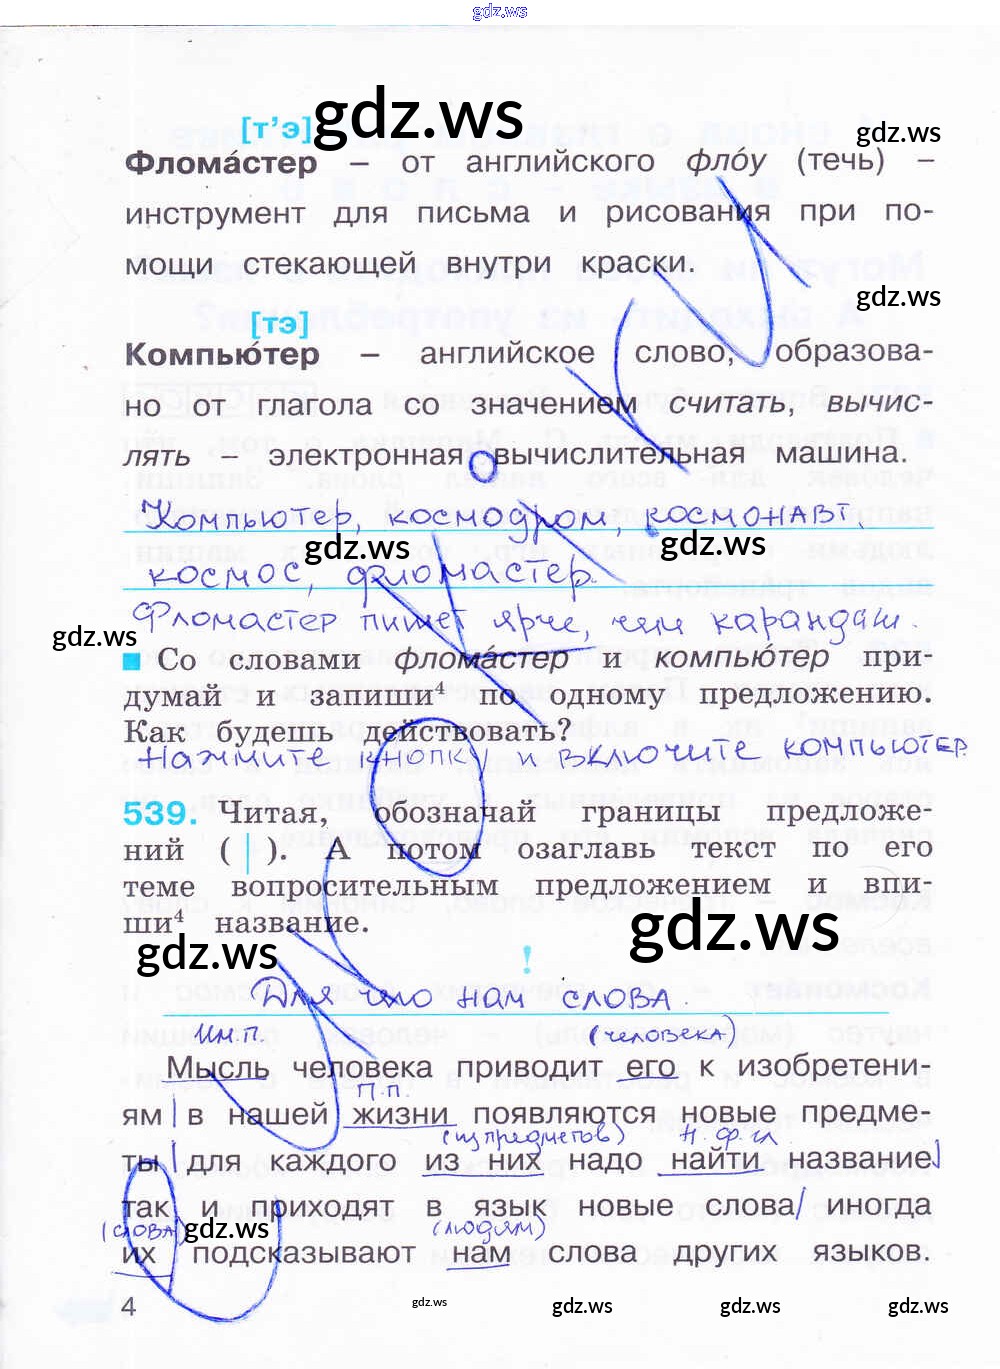 gdz.ws
[т’э]
gdz.ws
gdz.ws
Флома́стер – от английского фло́у (течь) –
инструмент для письма и рисования при по-
мощи стекающей внутри краски.
gdz.ws
[тэ]
Компью́тер – английское слово, образова-
но от глагола со значением считать, вычис-
лять – электронная вычислительная машина.
Компьютер, космодром, космонавт,
gdz.ws
gdz.ws
космос, фломастер.
Фломастер пишет ярче, чем карандаш.
gdz.ws
Со словами флома́стер и компью́тер при-
думай и запиши⁴ по одному предложению.
Как будешь действовать?
Нажмите кнопку и включите компьютер
539. Читая, обозначай границы предложе-
ний ( | ). А потом озаглавь текст по его
теме вопросительным предложением и впи-
ши⁴ название.
gdz.ws
gdz.ws
!
Для что нам слова.
Им.п.
(человека)
Мысль человека приводит его к изобретени-
П.п.
ям | в нашей жизни появляются новые предме-
(из предметов)
Н.ф.гл
ты | для каждого из них надо найти название |
так и приходят в язык новые слова | иногда
(слова)
gdz.ws
(людям)
их подсказывают нам слова других языков.
4
gdz.ws
gdz.ws
gdz.ws
gdz.ws